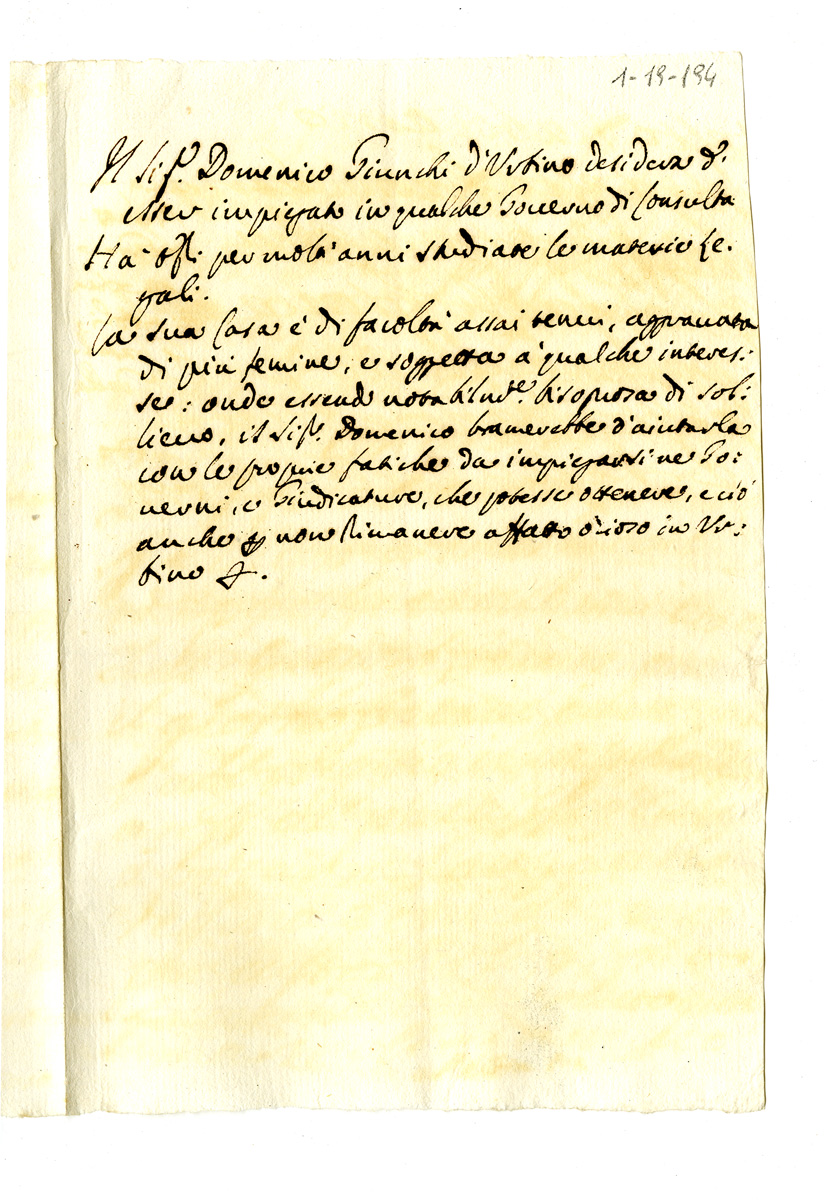 1-19-194
Il Sigr. Domenico Giunchi d'Urbino desidera d'
esser impiegato in qualche Governo di Consulta
Ha per molt'anni studiate le materie le-
gali.
La sua Casa è di facoltà assai tenui, aggravata
di più femine, e soggetta a qualche interes:
se: onde essendo notabilmte. bisognosa di sol:
lievo, il Sigr. Domenico bramerebbe d'aiutarla
con le proprie fatiche da impiegarsi ne Go:
verni, e Giudicature, che potesse ottenere, e ciò
anche p non rimanere affatto ozioso in Ur:
bino